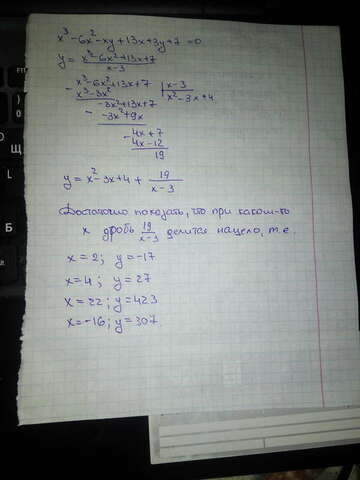 x³-6x²-xy+13x+3y+7=0
y = (x³-6x²+13x+7)/(x-3)
- x³-6x²+13x+7 | x-3
x³-3x² | x²-3x+4
-3x²+13x+7
- -3x²+9x
- 4x+7
4x-12
19
y = x²-3x+4+ 19/(x-3)
Достаточно показать, что при каком-то
x дробь 19/(x-3) делится нацело, т.е.
x=2; y=-17
x=4; y=27
x=22; y=423
x=-16; y=307
Щ
Б